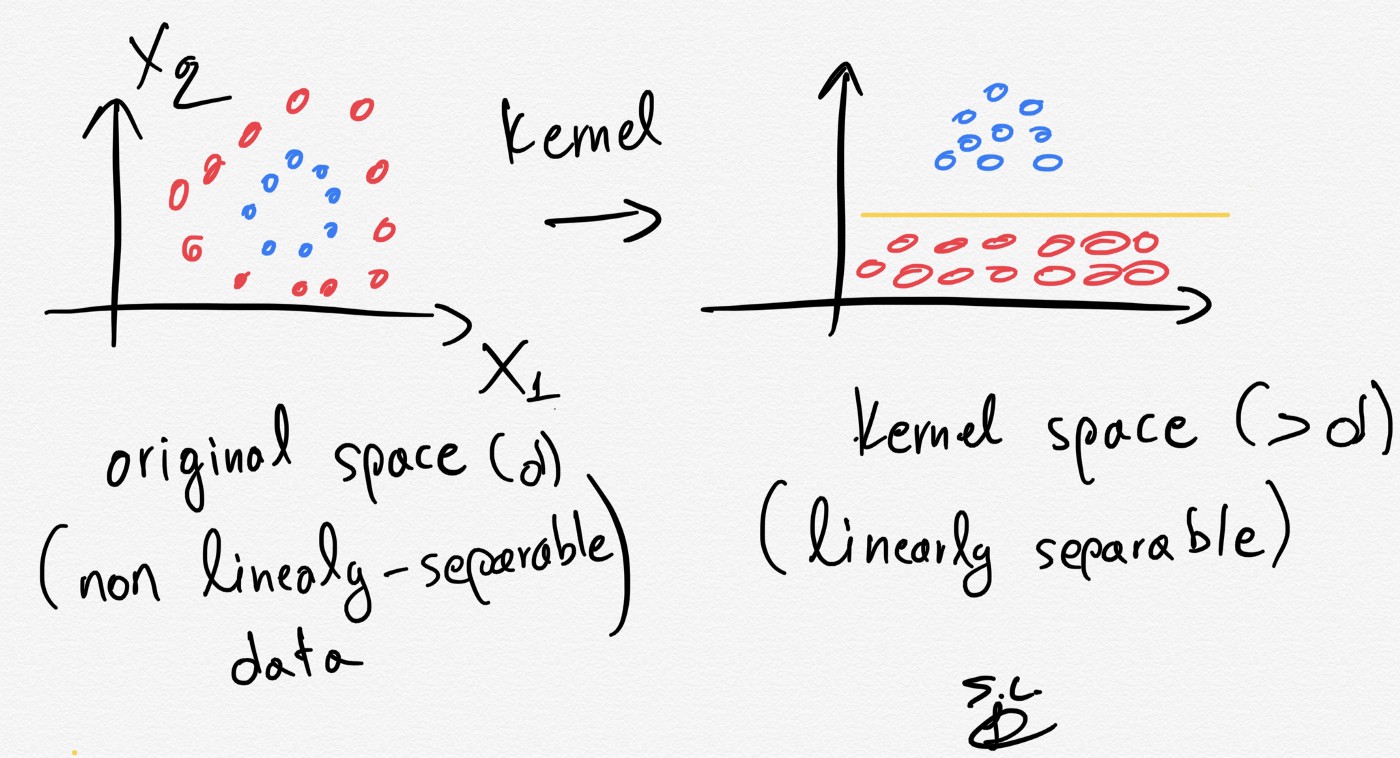 X2
Kernel
X1
original space (d)
(non linealy-separable)
data
Kernel space (>d)
(linearly separable)
S.C.